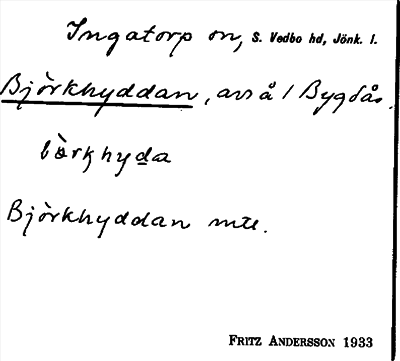 Ingatorp sn, S. Vedbo hd, Jönk. l.
Björkhyddan, avs å / Bygdås.
börkhyda
Björkhyddan mte.
FRITZ ANDERSSON 1933